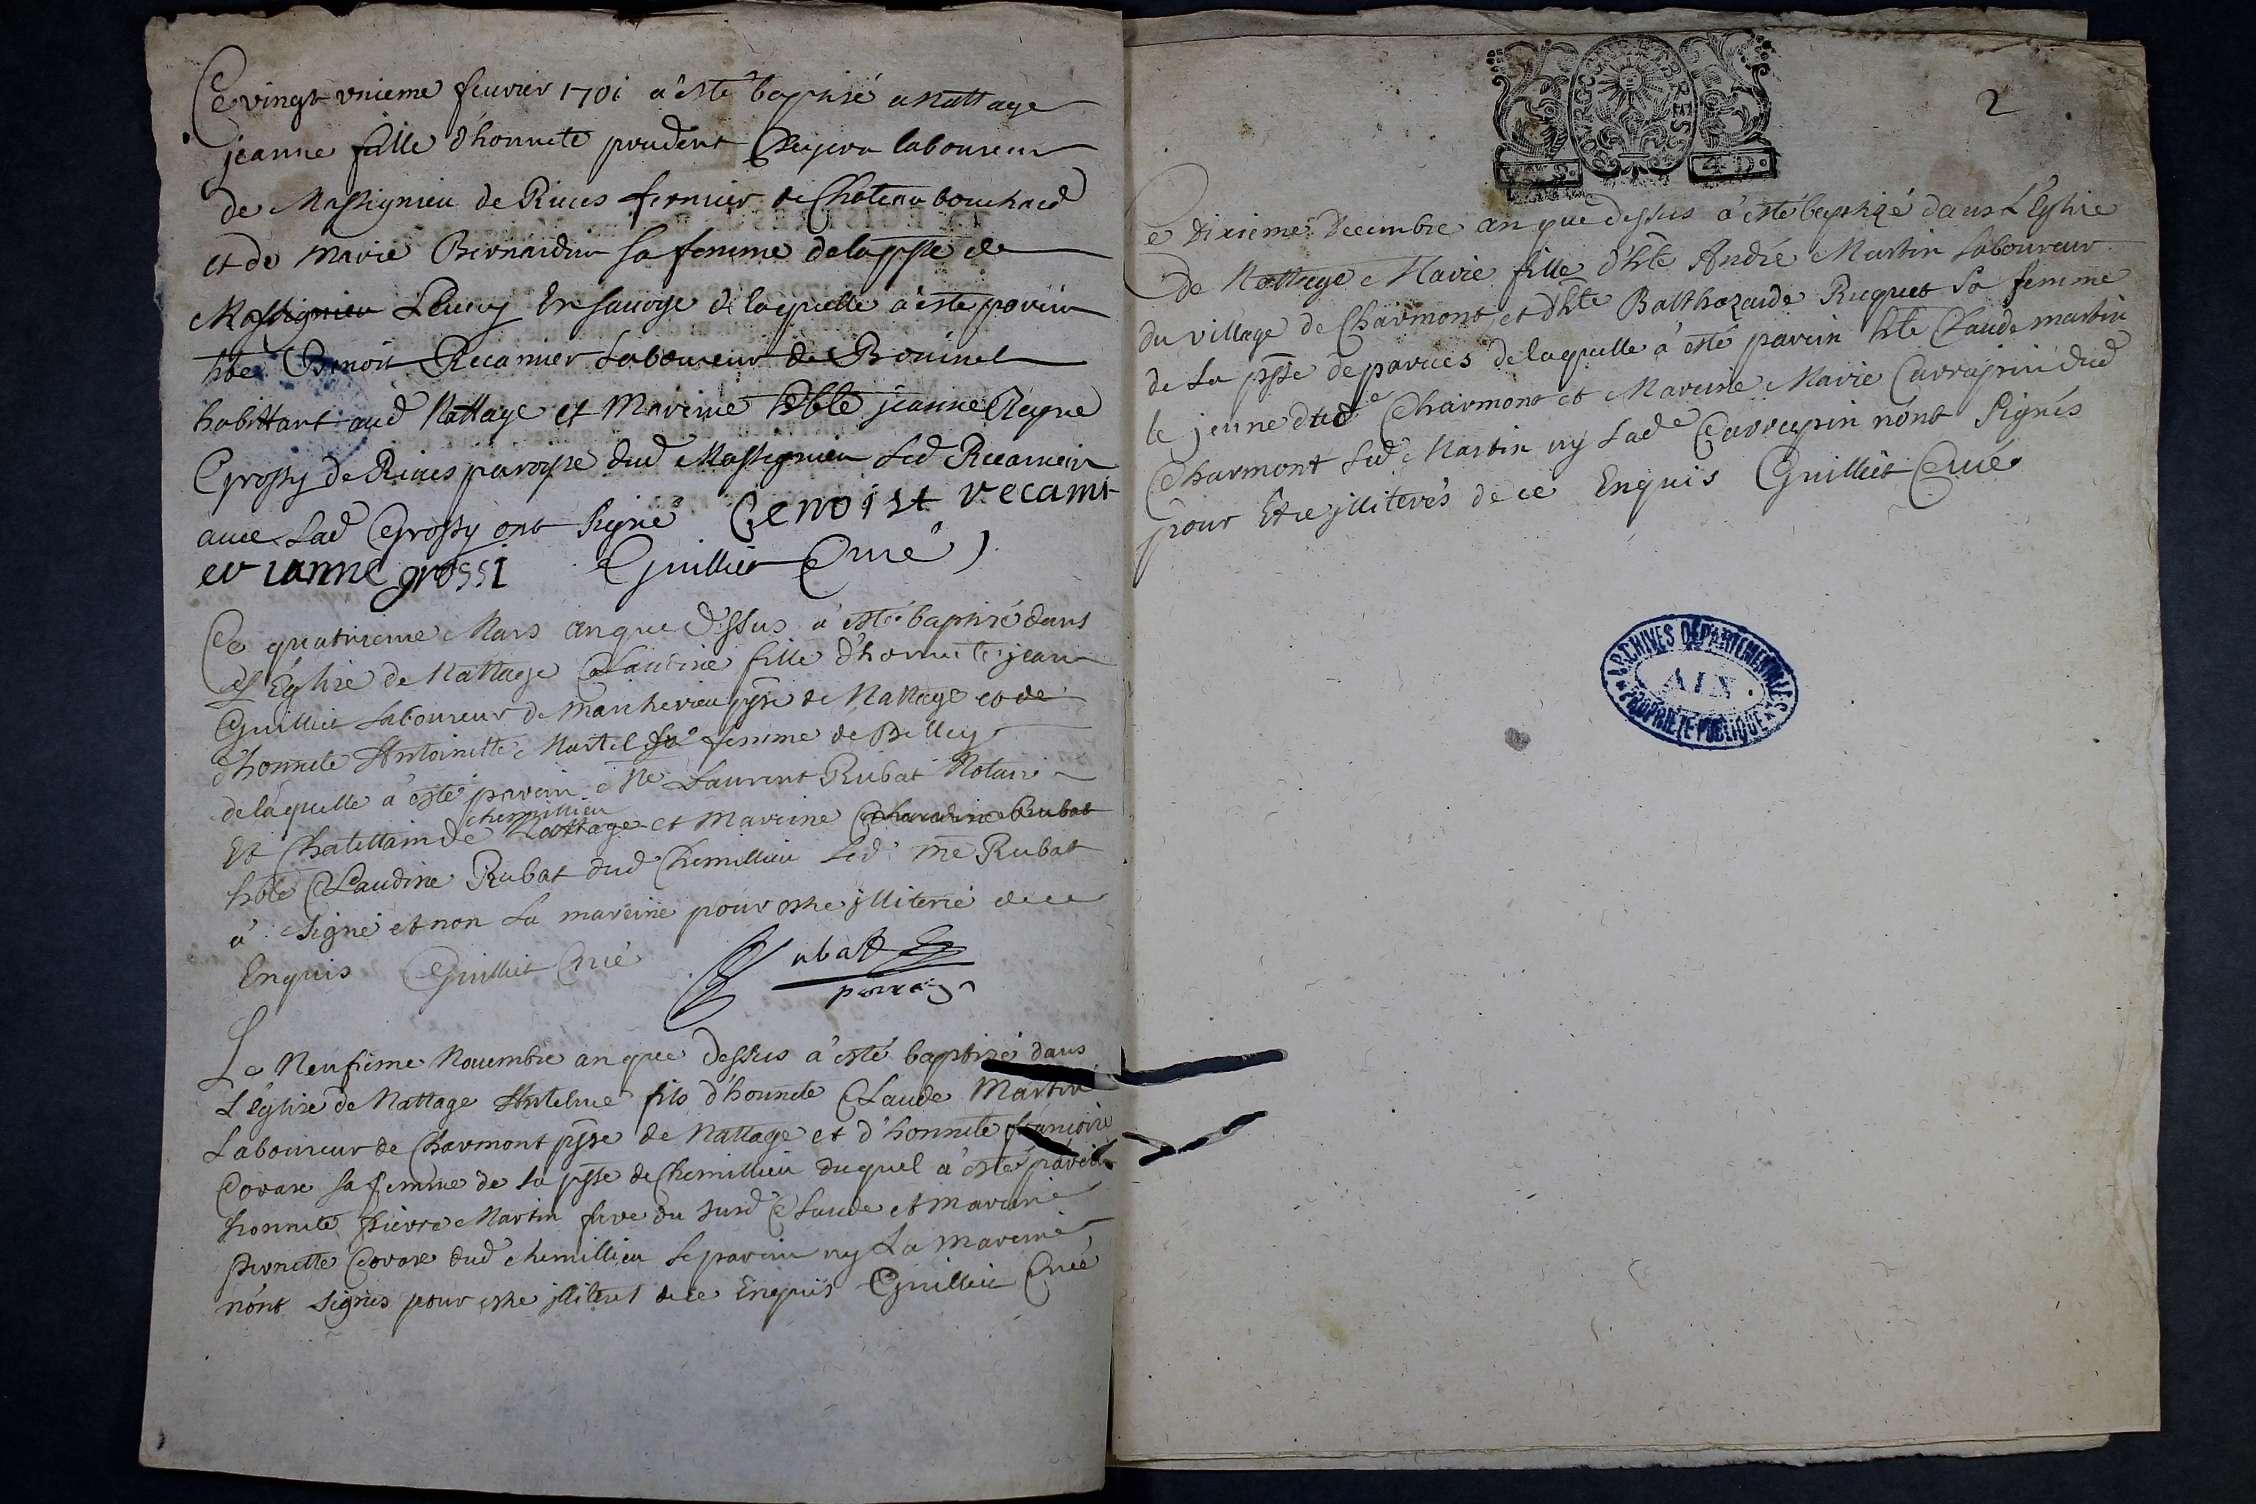 Ce vingt vnieme feurier 1701 a esté baptisé a Nattage
jeanne fille d'honnete prudent laboureur
de Massignieu de Riues fermier de Chateau bouchard
et de Marie Bernardin sa femme de la psse de
Massignieu en sauoye de laquelle a esté parein
hble Benoit Recamier Laboureur de
habittant aud Nattage et Mareine hble jeanne
Grossy de Riues paroisse dud Massignieu Led Recamier
auec Lad Grossy ont signé Benoist recami
er ianne grossi Guilliet Curé
Ce quatrieme Mars an que dessus a esté baptisé dans
L'Eglise de Nattage Claudine fille d'honnete jean
Guilliet Laboureur de psse de Nattage et de
d'honnete Antoinette Martel sa femme de Belley
de laquelle a esté parein Me Laurent Rubat Notaire
chemillieu
Et Chatellain de Nattage et Mareine Claudine Rubat
hble Claudine Rubat dud Chemillieu Led Me Rubat
a signé et non La mareine pour estre illiterée de ce
Enquis Guilliet Curé Rubat
parrein
Le Neufieme Nouembre an que dessus a esté baptisé dans
L'église de Nattage Antelme fils d'honnete Claude Martin
Laboureur de Charmont psse de Nattage et d'honnete francoise
Couare sa femme de La psse de Chemillieu duquel a esté parein
honnete Pierre Martin frere du susd Claude et mareine
Pernette Couare dud chemillieu Le parein ny La mareine
n'ont signés pour estre illiteres de ce Enquis Guilliet Curé
2
BOURGOGNE ET BRESSE
4 D.
Ce Dixieme Decembre an que dessus a esté baptizé dans L'Eglise
de Nattage Marie fille d'hte André Martin Laboureur
du village de Charmont et d'hte Balthazarde Ruquet sa femme
de La psse de parues de laquelle a esté parein hte Claude martin
le jeune dud Charmont et Mareine Marie Carrupin dud
Charmont Led Martin ny Lade Carrupin n'ont signés
pour Etre illiterés de ce Enquis Guilliet Curé
ARCHIVES DÉPARTEMENTALES
AIN
PROPRIÉTÉ PUBLIQUE